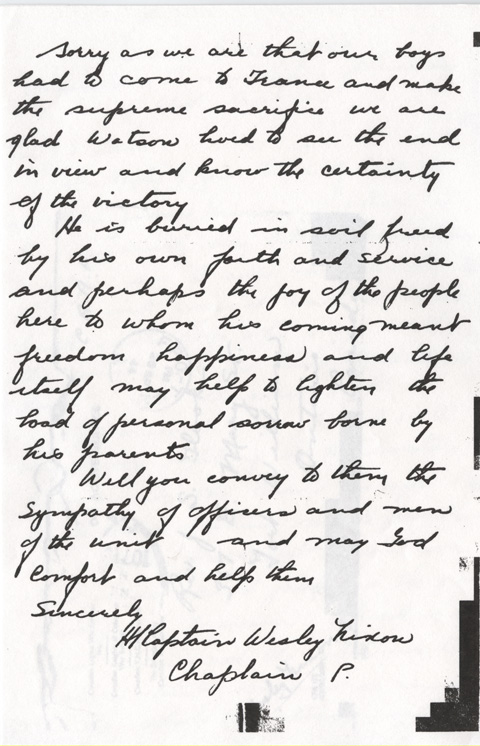 Sorry as we are that our boys
had to come to France and make
the supreme sacrifice we are
glad Watson lived to see the end
in view and know the certainty
of the victory
He is buried in soil freed
by his own faith and service
and perhaps the joy of the people
here to whom his coming meant
freedom happiness and life
itself may help to lighten the
load of personal sorrow borne by
his parents
Will you convey to them the
Sympathy of officers and men
of the unit and may God
Comfort and help them
Sincerely
H/Captain Wesley Nixon
Chaplain P.